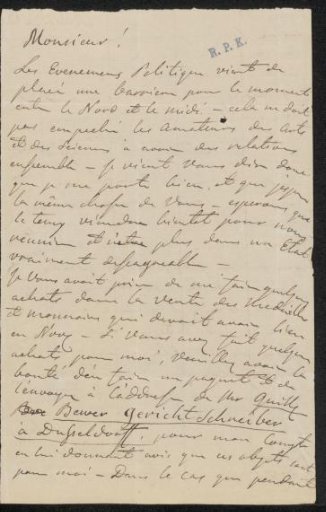 Monsieur!
R.P.K.
Les Evenemens Politique vient de
placer une barriere pour le moment
entre le Nord et le midi – cela ne doit
pas empecher les Amateurs des Arts
et des Sciences a avoir des relations
ensemble – Je vient vous dire donc
que je me porte bien, et que j'espere
la même chose de Vous – esperons que
le temps viendra bientot pour nous
reunir et d'être plus dans un Etat
vraiment desagreable –
Je Vous avait prier de me faire quelques
achats dans la vente des Medailles
et monnaies qui devait avoir lieu
en Nov – Si Vous avez fait quelques
achats pour moi, veuillez avoir la
bonté d'en faire un paquet et de
l'envoyer à l'addresse de Mr
Bewer Gericht Schreiber
à Dusseldorff, pour mon Compte
en lui donnant avis que ces objets sont
pour moi – Dans le cas que pendant